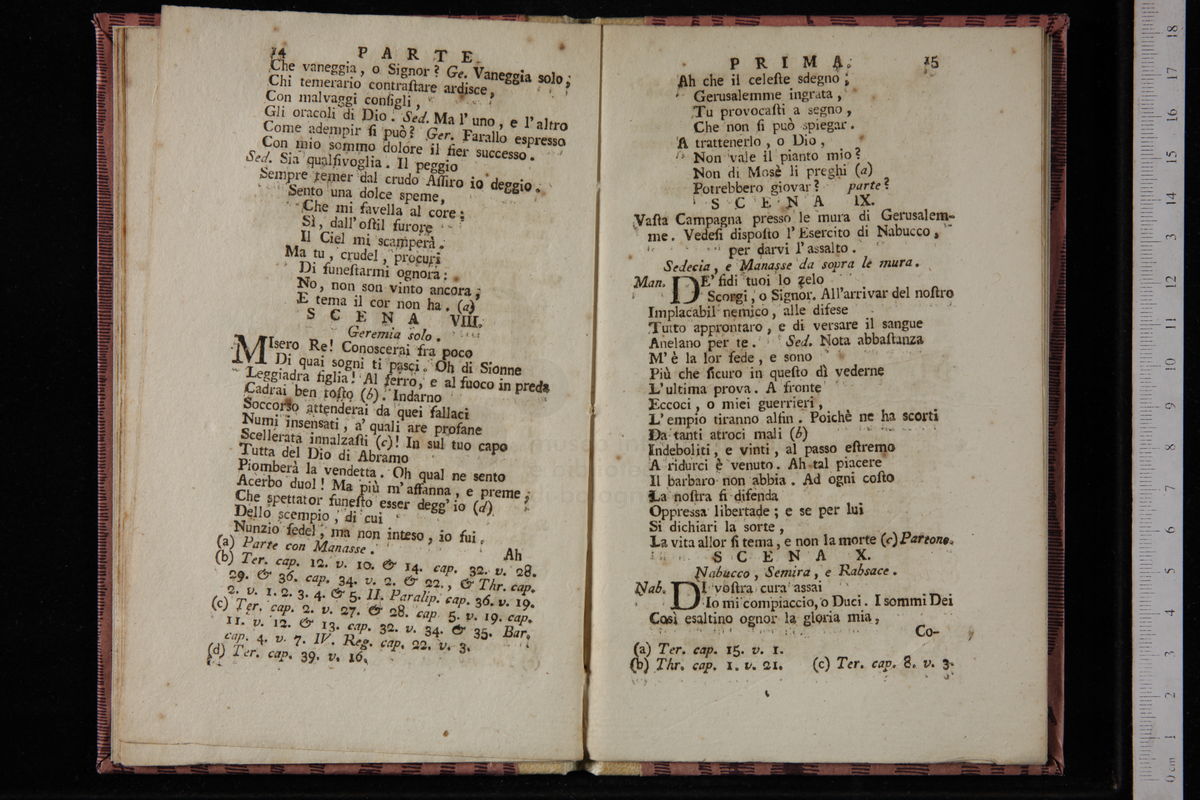 14 PARTE
Che vaneggia, o Signor? Ge. Vaneggia solo;
Chi temerario contraſtare ardisce,
Con malvaggi conſigli,
Gli oracoli di Dio. Sed. Ma l'uno, e l'altro
Come adempir ſi può? Ger. Farallo espresso
Con mio sommo dolore il fier successo.
Sed. Sia qualſivoglia. Il peggio
Sempre temer dal crudo Aſſiro io deggio.
Sento una dolce speme,
Che mi favella al core;
Sì, dall'oſtil furore
Il Ciel mi scamperà.
Ma tu, crudel, procuri
Di funeſtarmi ognora:
No, non son vinto ancora;
E tema il cor non ha. (a)
SCENA VIII.
Geremia solo.
MIsero Re! Conoscerai fra poco
Di quai sogni ti pasci. Oh di Sionne
Leggiadra figlia! Al ferro, e al fuoco in preda
Cadrai ben toſto (b). Indarno
Soccorso attenderai da quei fallaci
Numi insensati, a' quali are profane
Scellerata innalzaſti (c)! In sul tuo capo
Tutta del Dio di Abramo
Piomberà la vendetta. Oh qual ne sento
Acerbo duol! Ma più m'affanna, e preme;
Che spettator funeſto esser degg'io (d)
Dello scempio, di cui
Nunzio fedel, ma non inteso, io fui.
Ah
(a) Parte con Manasse.
(b) Ter. cap. 12. v. 10. & 14. cap. 32. v. 28.
29. & 36. cap. 34. v. 2. & 22., & Thr. cap.
2. v. 1. 2. 3. 4. & 5. II. Paralip. cap. 36. v. 19.
(c) Ter. cap. 2. v. 27. & 28. cap 5. v. 19. cap.
11. v. 12. & 13. cap. 32. v. 34. & 35. Bar.
cap. 4. v. 7. IV. Reg. cap. 22. v. 3.
(d) Ter. cap. 39. v. 16.
PRIMA. 15
Ah che il celeſte sdegno;
Gerusalemme ingrata,
Tu provocaſti a segno,
Che non ſi può spiegar.
A trattenerlo, o Dio,
Non vale il pianto mio?
Non di Mosè li preghi (a)
Potrebbero giovar? parte?
SCENA IX.
Vaſta Campagna presso le mura di Gerusalem-
me. Vedeſi dispoſto l'Esercito di Nabucco,
per darvi l'assalto.
Sedecia, e Manasse da sopra le mura.
Man. DE' fidi tuoi lo zelo
Scorgi, o Signor. All'arrivar del noſtro
Implacabil nemico, alle difese
Tutto approntaro, e di versare il sangue
Anelano per te. Sed. Nota abbaſtanza
M'è la lor fede, e sono
Più che ſicuro in queſto dì vederne
L'ultima prova. A fronte
Eccoci, o miei guerrieri,
L'empio tiranno alfin. Poichè ne ha scorti
Da tanti atroci mali (b)
Indeboliti, e vinti, al passo eſtremo
A ridurci è venuto. Ah tal piacere
Il barbaro non abbia. Ad ogni coſto
La noſtra ſi difenda
Oppressa libertade; e se per lui
Si dichiari la sorte,
La vita allor ſi tema, e non la morte (c) Partono.
SCENA X.
Nabucco, Semira, e Rabsace.
Nab. DI voſtra cura assai
Io mi compiaccio, o Duci. I sommi Dei
Così esaltino ognor la gloria mia,
Co-
(a) Ter. cap. 15. v. 1.
(b) Thr. cap. 1. v. 21. (c) Ter. cap. 8. v. 3.
0 cm 1 2 3 4 5 6 7 8 9 10 11 12 13 14 15 16 17 18